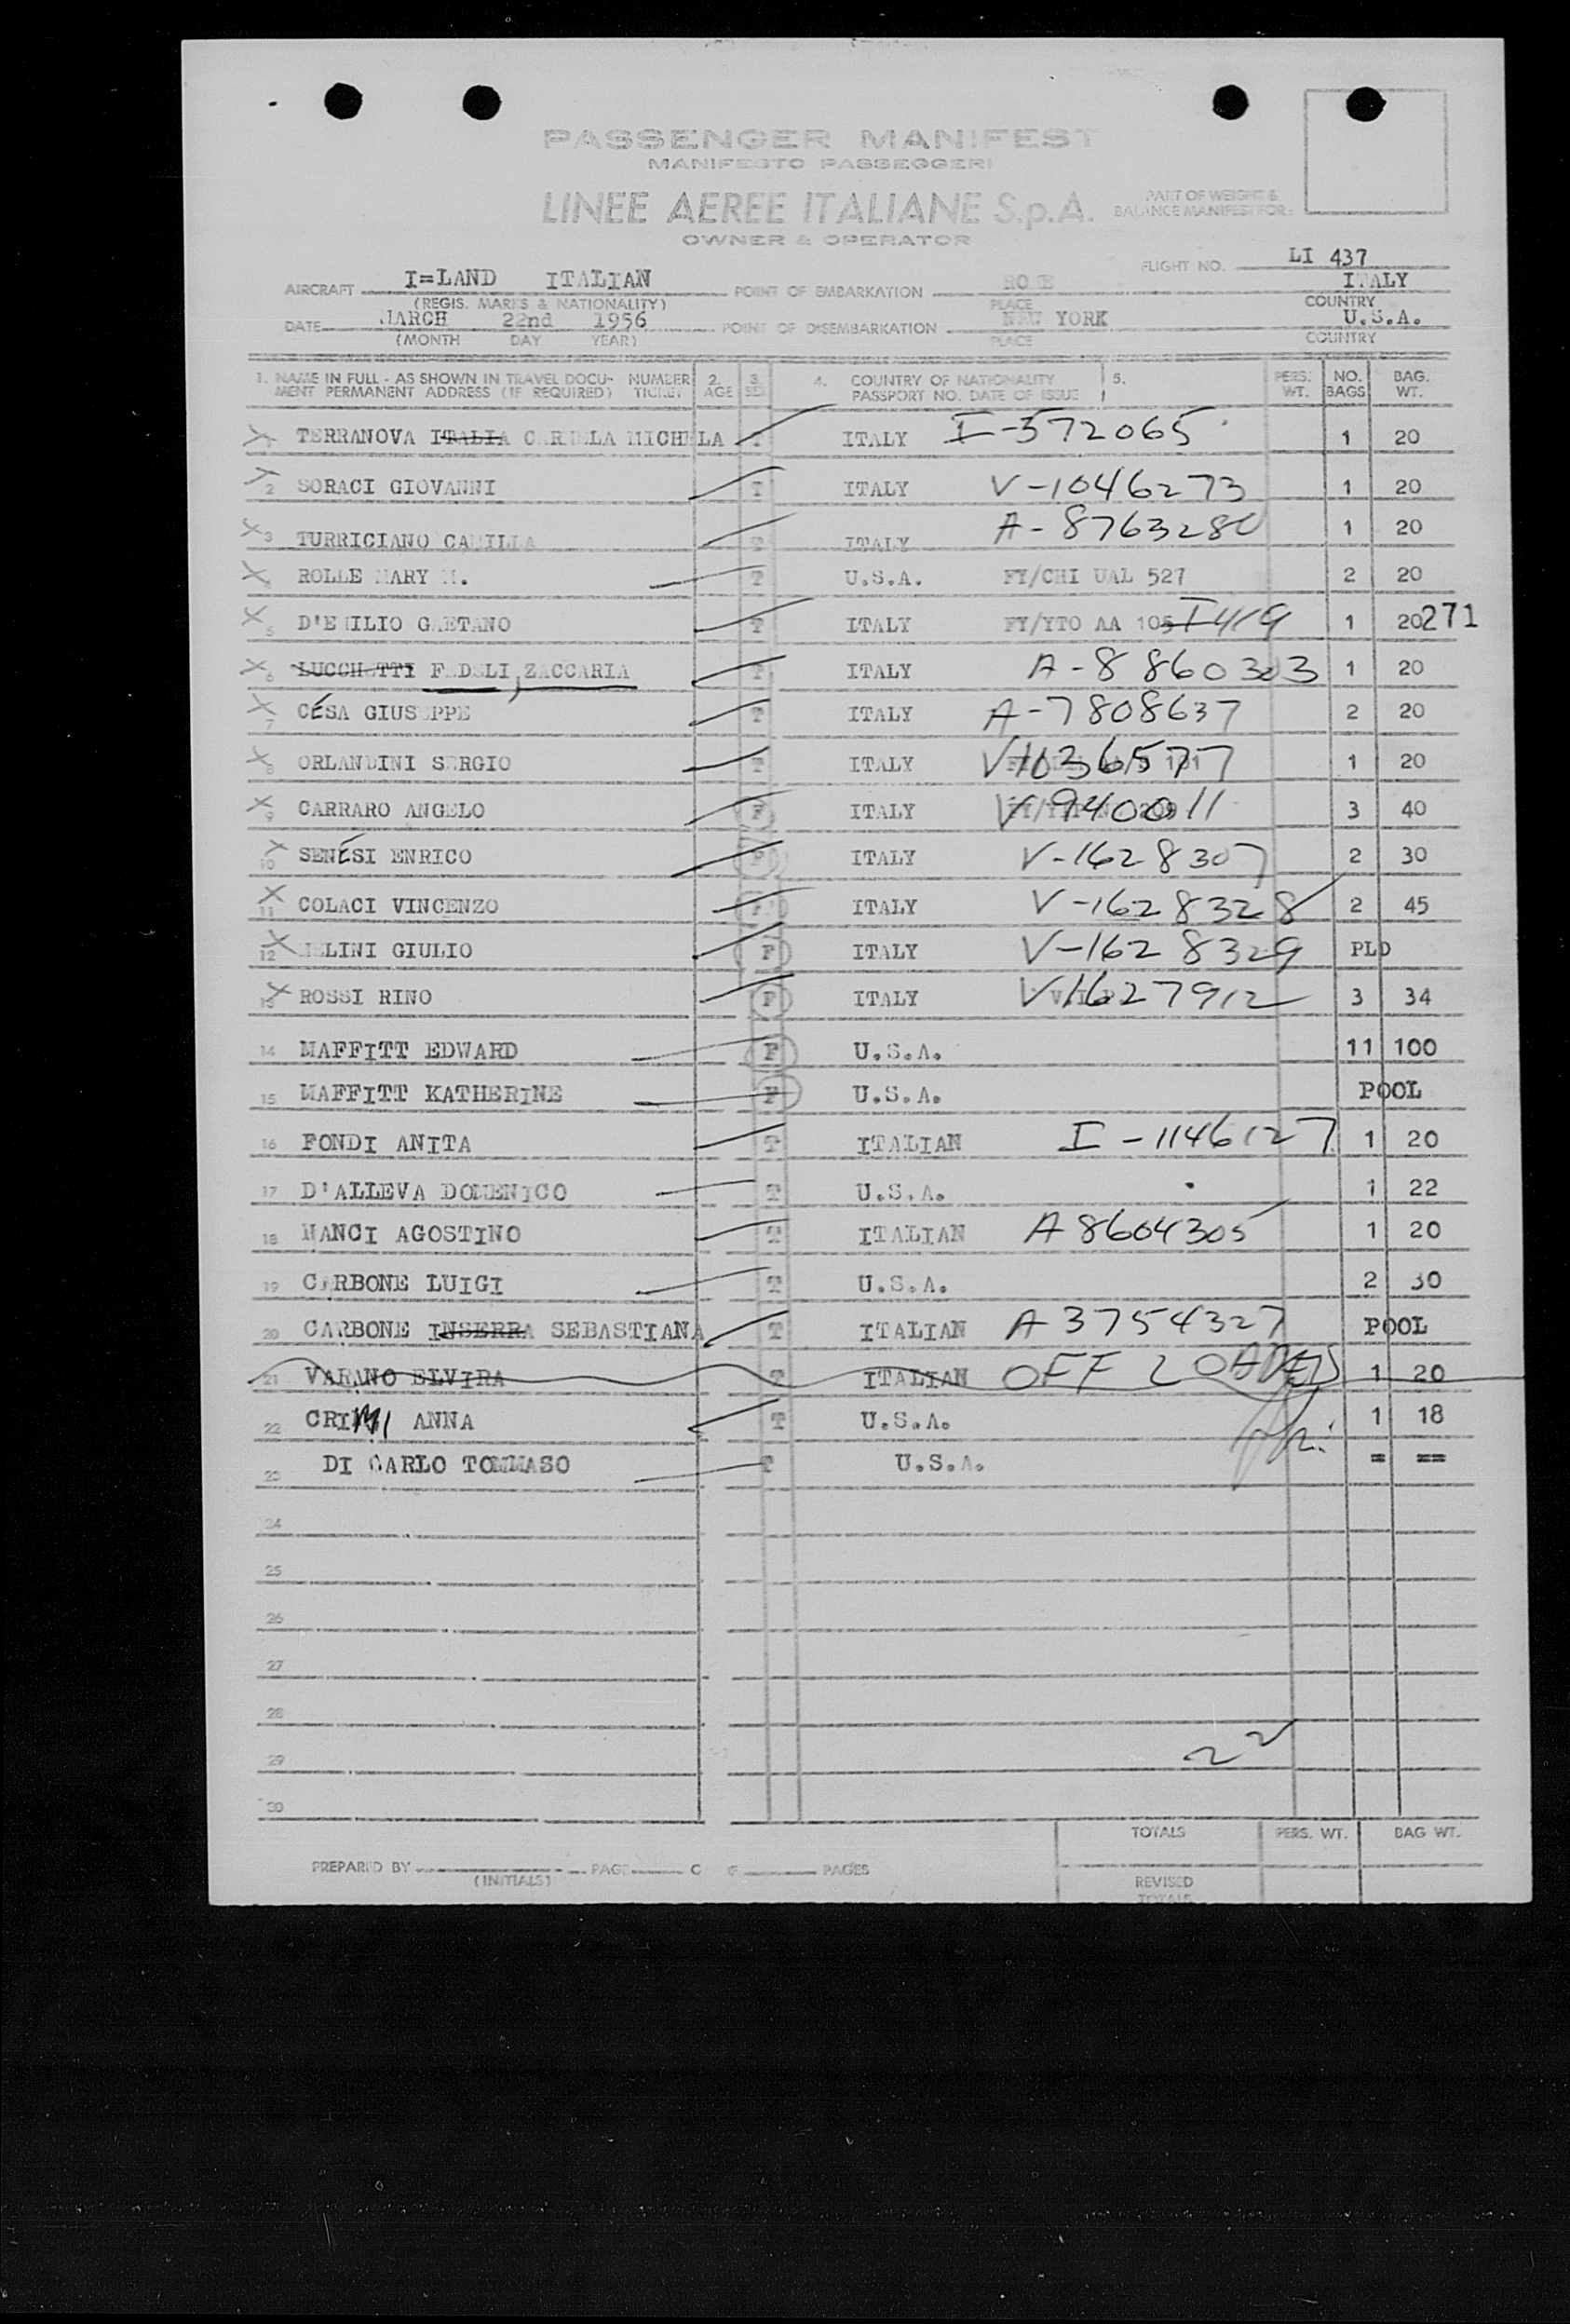 PASSENGER MANIFEST
MANIFESTO PASSEGGERI
LINEE AEREE ITALIANE S.p.A.
OWNER & OPERATOR
PART OF WEIGHT &
BALANCE MANIFEST FOR:
FLIGHT NO. LI 437
AIRCRAFT I=LAND ITALIAN POINT OF EMBARKATION ROME ITALY
(REGIS. MARKS & NATIONALITY) PLACE COUNTRY
DATE MARCH 22nd 1956 POINT OF DISEMBARKATION NEW YORK U.S.A.
(MONTH DAY YEAR) PLACE COUNTRY
1. NAME IN FULL - AS SHOWN IN TRAVEL DOCU- NUMBER 2. 3. 4. COUNTRY OF NATIONALITY 5. PERS. NO. BAG.
MENT PERMANENT ADDRESS (IF REQUIRED) TICKET AGE SEX PASSPORT NO. DATE OF ISSUE WT. BAGS WT.
1 TERRANOVA ITALIA CARMELA MICHELA T ITALY I-572065 1 20
2 SORACI GIOVANNI T ITALY V-1046273 1 20
3 TURRICIANO CAMILLA T ITALY A-8763280 1 20
4 ROLLE MARY M. T U.S.A. FY/CHI UAL 527 2 20
5 D'EMILIO GAETANO T ITALY FY/YTO AA 105 I419271 1 20
6 LUCCHETTI FEDELI, ZACCARIA T ITALY A-8860303 1 20
7 CESA GIUSEPPE T ITALY A-7808637 2 20
8 ORLANDINI SERGIO T ITALY V1036577 1 20
9 CARRARO ANGELO F ITALY V-940011 3 40
10 SENESI ENRICO F ITALY V-1628307 2 30
11 COLACI VINCENZO F ITALY V-1628328 2 45
12 LINI GIULIO F ITALY V-1628329 PLD
13 ROSSI RINO F ITALY V1627912 3 34
14 MAFFITT EDWARD F U.S.A. 11 100
15 MAFFITT KATHERINE F U.S.A. POOL
16 FONDI ANITA T ITALIAN I-1146127 1 20
17 D'ALLEVA DOMENICO T U.S.A. 1 22
18 MANCI AGOSTINO T ITALIAN A8604305 1 20
19 CARBONE LUIGI T U.S.A. 2 30
20 CARBONE INSERRA SEBASTIANA T ITALIAN A3754327 POOL
21 VARANO ELVIRA T ITALIAN OFF LOADED 1 20
22 CRIMI ANNA T U.S.A. 1 18
23 DI CARLO TOMMASO T U.S.A. = ==
24
25
26
27
28
29
22
30
TOTALS PERS. WT. BAG WT.
PREPARED BY PAGE OF PAGES
(INITIALS) REVISED
TOTALS